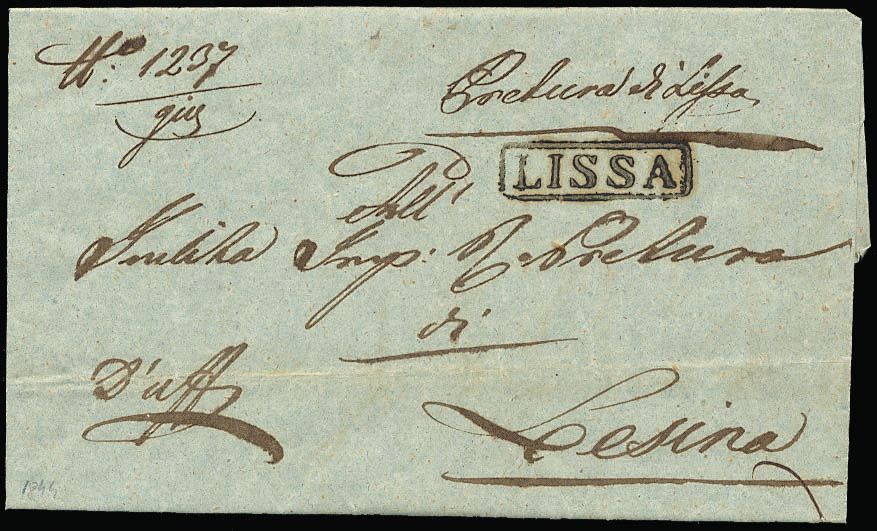 N.º 1237
giuz
Pretura di Lissa
LISSA
All'
Inclita Imp: R. Pretura
di
D'uff
Lesina
1844